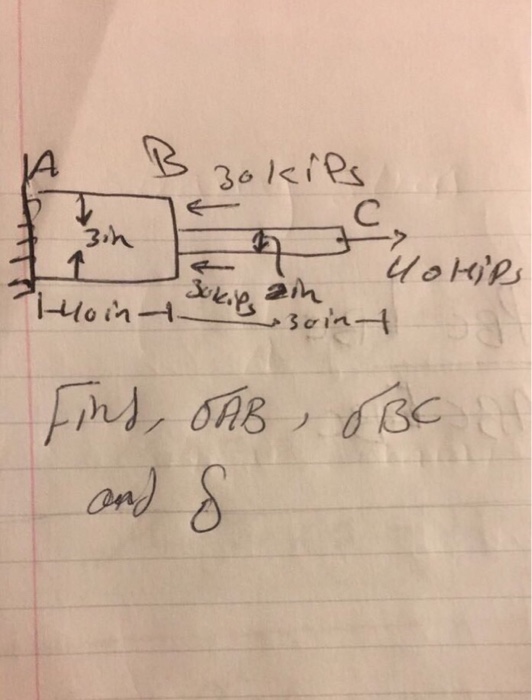 A B 30kiPs
C
3in
40kiPs
30kiPs 2in
40in 30in
Find, σAB, σBC
and δ